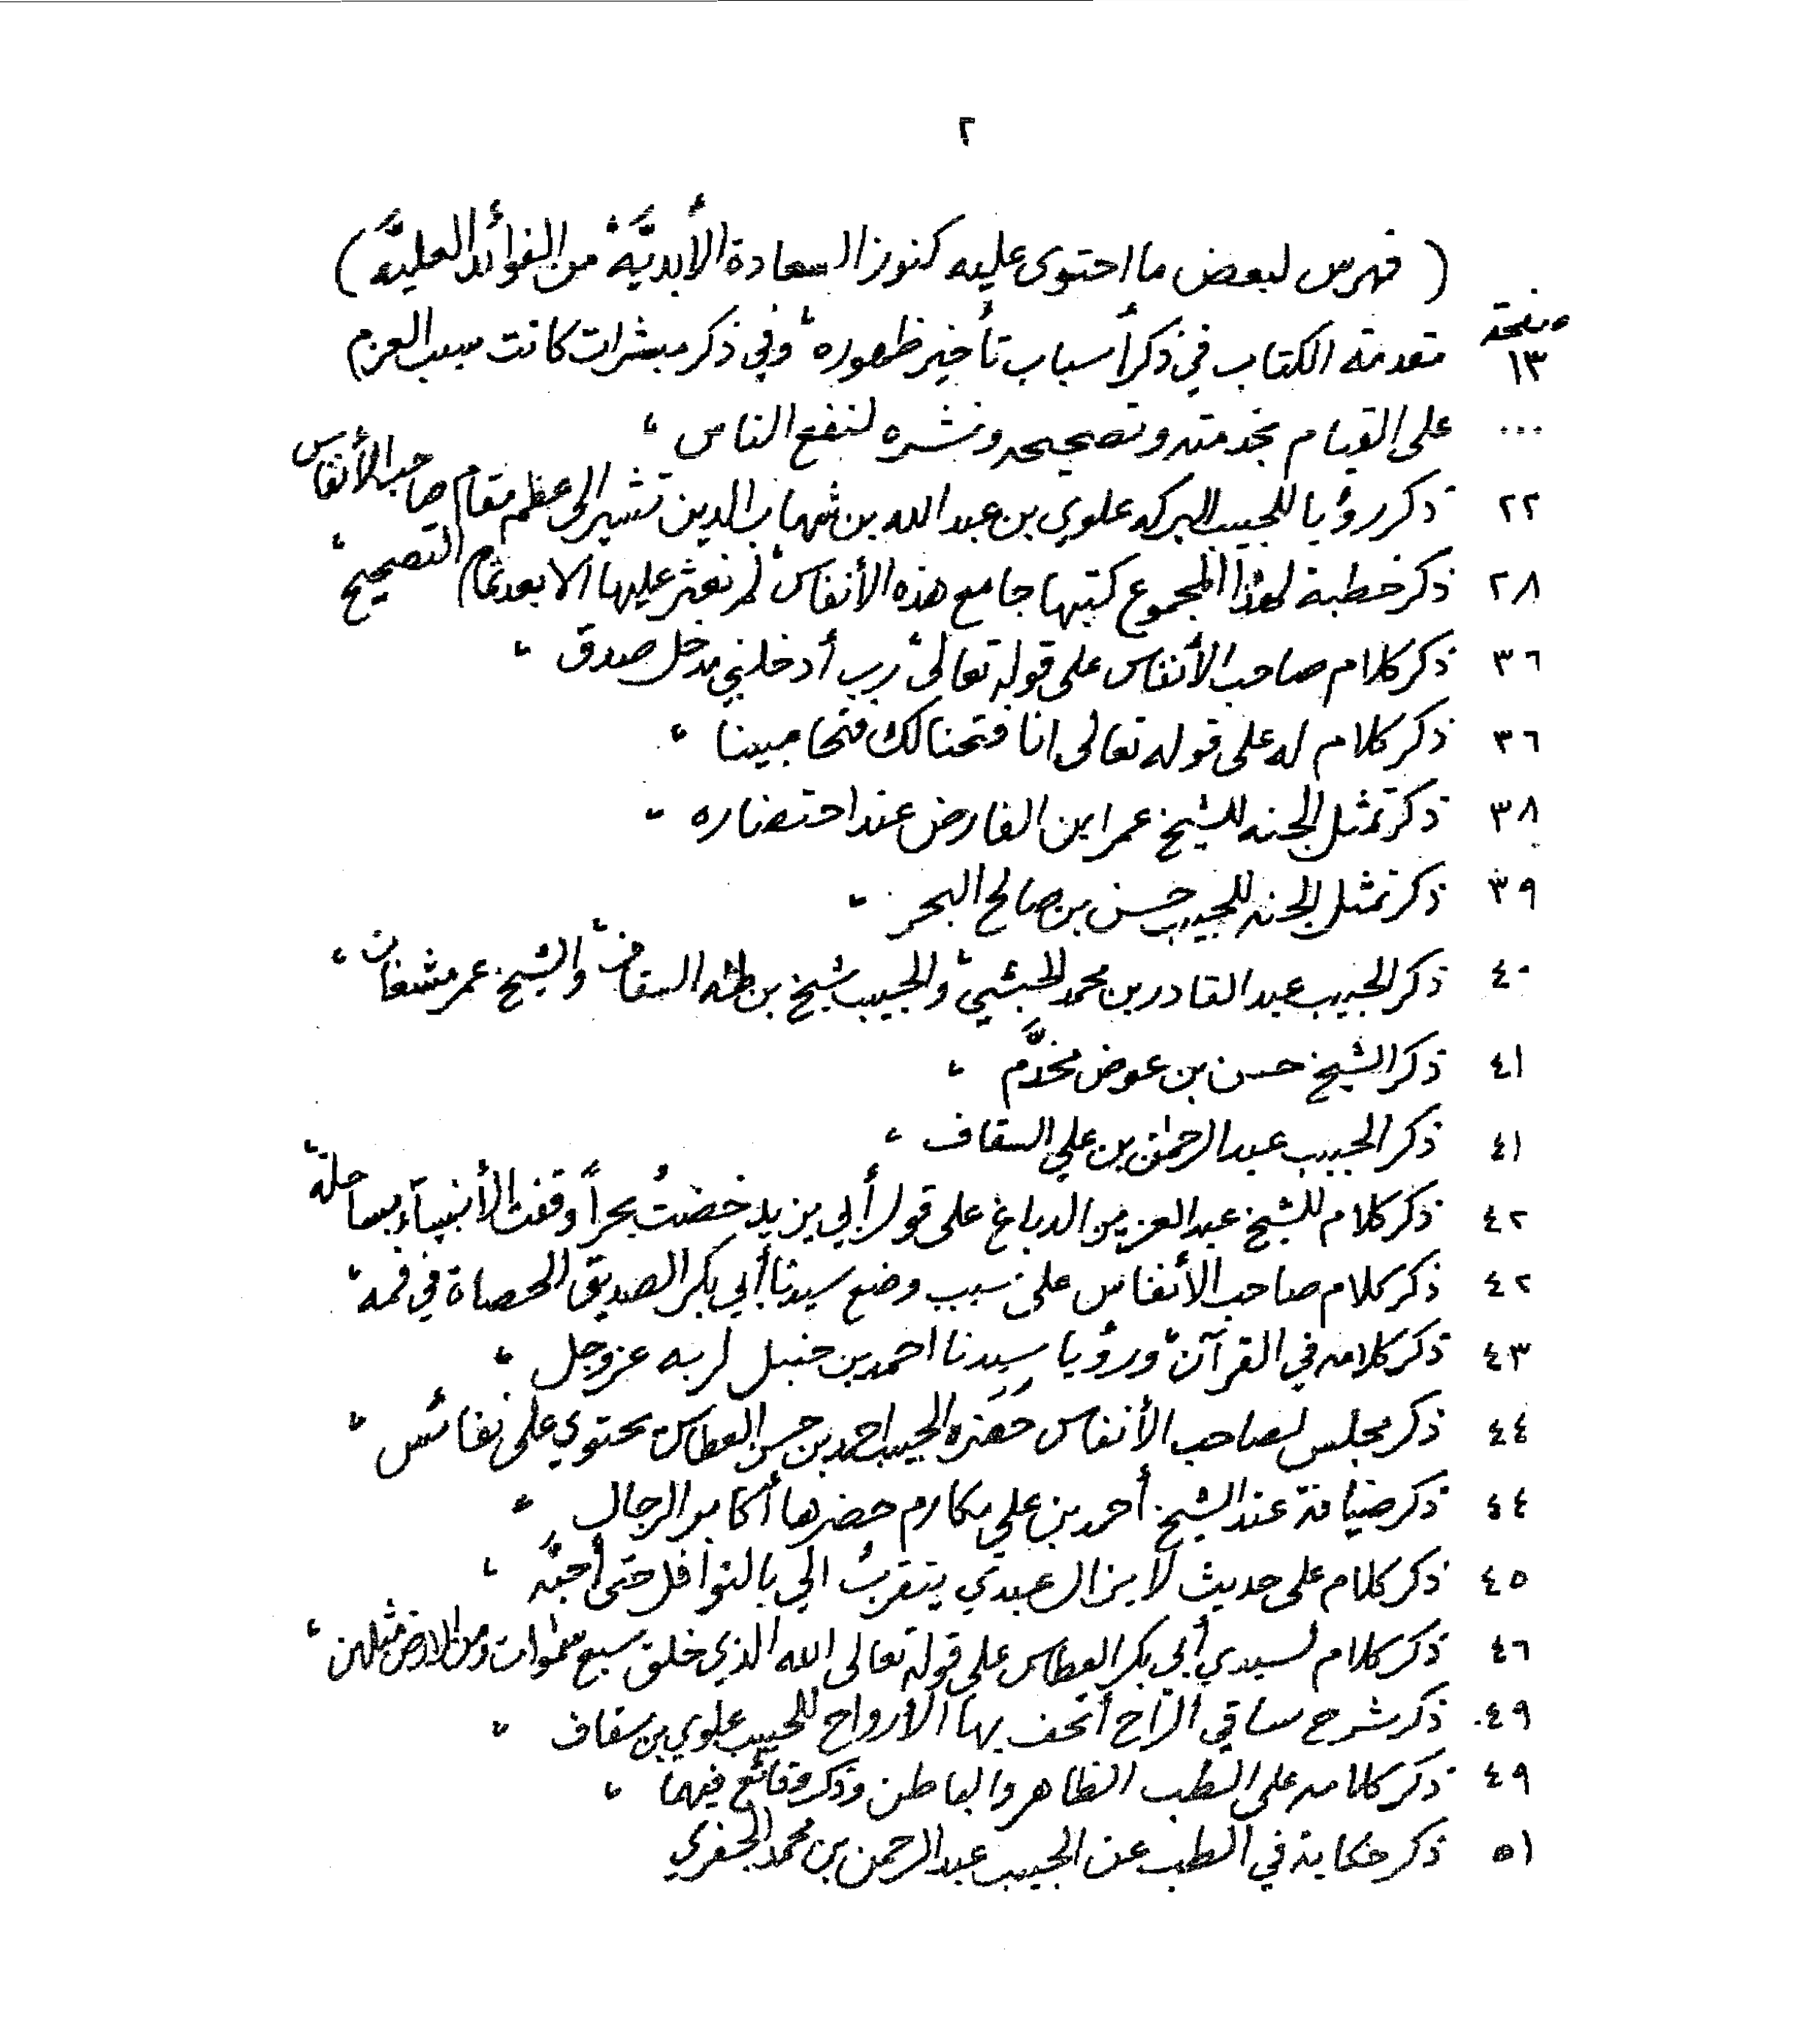 ٢
( فهرس لبعض ما احتوى عليه كنوز السعادة الأبديَّة من الفوائد العليَّة )
صفحة
١٣ مقدمة الكتاب في ذكر أسباب تأخير ظهوره، وفي ذكر مبشرات كانت سبب العزم
... على القيام بخدمته وتصحيحه ونشره لنفع الناس ،
٢٢ ذكر رؤيا للحبيب البركه علوي بن عبد الله بن شهاب الدين تشير الى عظم مقام صاحب الأنفاس
٢٨ ذكر خطبة لهذا المجموع كتبها جامع هذه الأنفاس لم نعثر عليها الا بعد تمام التصحيح ،
٣٦ ذكر كلام صاحب الأنفاس على قوله تعالى رب أدخلني مدخل صدق ،
٣٦ ذكر كلام له على قوله تعالى انا فتحنا لك فتحا مبينا ،
٣٨ ذكر تمثل الجنه للشيخ عمر ابن الفارض عند احتضاره ،
٣٩ ذكر تمثل الجنه للحبيب حسن بن صالح البحر ،
٤٠ ذكر الحبيب عبد القادر بن محمد الحبشي، والحبيب شيخ بن طه السقاف، والشيخ عمر مشغان ،
٤١ ذكر الشيخ حسن بن عوض مخدَّم ،
٤١ ذكر الحبيب عبد الرحمٰن بن علي السقاف ،
٤٢ ذكر كلام للشيخ عبد العزيز الدباغ على قول أبي يزيد خضتُ بحراً وقفت الأنبياء بساحله ،
٤٢ ذكر كلام صاحب الأنفاس على سبب وضع سيدنا أبي بكر الصديق الحصاة في فمه ،
٤٣ ذكر كلامه في القرآن، ورؤيا سيدنا احمد بن حنبل لربه عزوجل ،
٤٤ ذكر مجلس لصاحب الأنفاس حَضَره الحبيب احمد بن حسن العطاس يحتوي على نفائس ،
٤٤ ذكر ضيافة عند الشيخ أحمد بن علي مكارم حضرها أكابر الرجال ،
٤٥ ذكر كلام على حديث لا يزال عبدي يتقرب الي بالنوافل حتى أحبَّه ،
٤٦ ذكر كلام لسيدي أبي بكر العطاس على قوله تعالى الله الذي خلق سبع سمٰوات ومن الارض مثلهن ،
٤٩ ذكر شرح ساقي الراح أتحف بها الأرواح للحبيب علوي بن سقاف ،
٤٩ ذكر كلامه على الطب الظاهر والباطن وذكر وقائع فيهما ،
٥١ ذكر حكاية في الطب عن الحبيب عبد الرحمن بن محمد الجفري